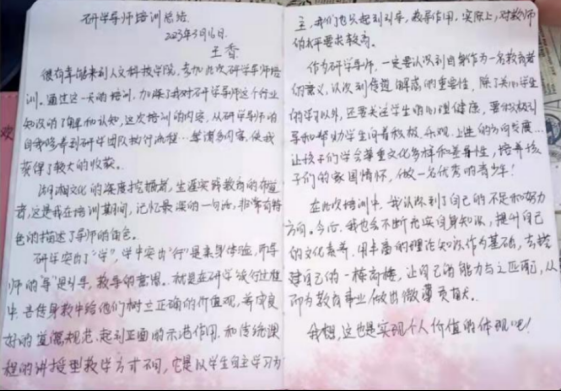 研学导师培训总结
2023年5月16日
王香
很有幸能来到人文科技学院,参加此次研学导师培
训。通过这一天的培训,加深了我对研学导师这个行业
知识的了解和认知,这次培训的内容,从研学导师的
自我修养到研学团队执行流程…等诸多内容,使我
获得了较大的收获。
湖湘文化的深度挖掘者,生涯实践教育的布道
者,这是我在培训期间,记忆最深的一句话,非常有特
色的描述了导师的角色。
研学突出了“学”,学中突出“行”是亲身体验,而导
师的“导”是引导,教导的意思。就是在研学旅行过程
中,言传身教中给他们树立正确的价值观,养成良
好的道德规范,起到正面的示范作用,和传统课
程的讲授型教学方式不同,它是以学生自主学习为
主,我们老师起到引导,教导作用,实际上,对教师
的水平要求较高。
作为研学导师,一定要认识到自身作为一名教育者
的意义,认识到传道解惑的重要性,除了关心学生
的学习以外,还要关注学生的心理健康,要积极引
导和帮助学生向着积极、乐观、上进的方向发展…
让孩子们学会尊重文化多样和差异性,培养孩
子们的家国情怀,做一名优秀的青少年!
在此次培训中,我认识到了自己的不足和努力
方向。今后,我也会不断充实自身知识,提升自己
的文化素养,用丰富的理论知识作为基础,去搭
建自己的一楼高楼,让自己的能力与之匹配,从
而为教育事业做出微薄贡献。
我想,这也是实现个人价值的体现吧!